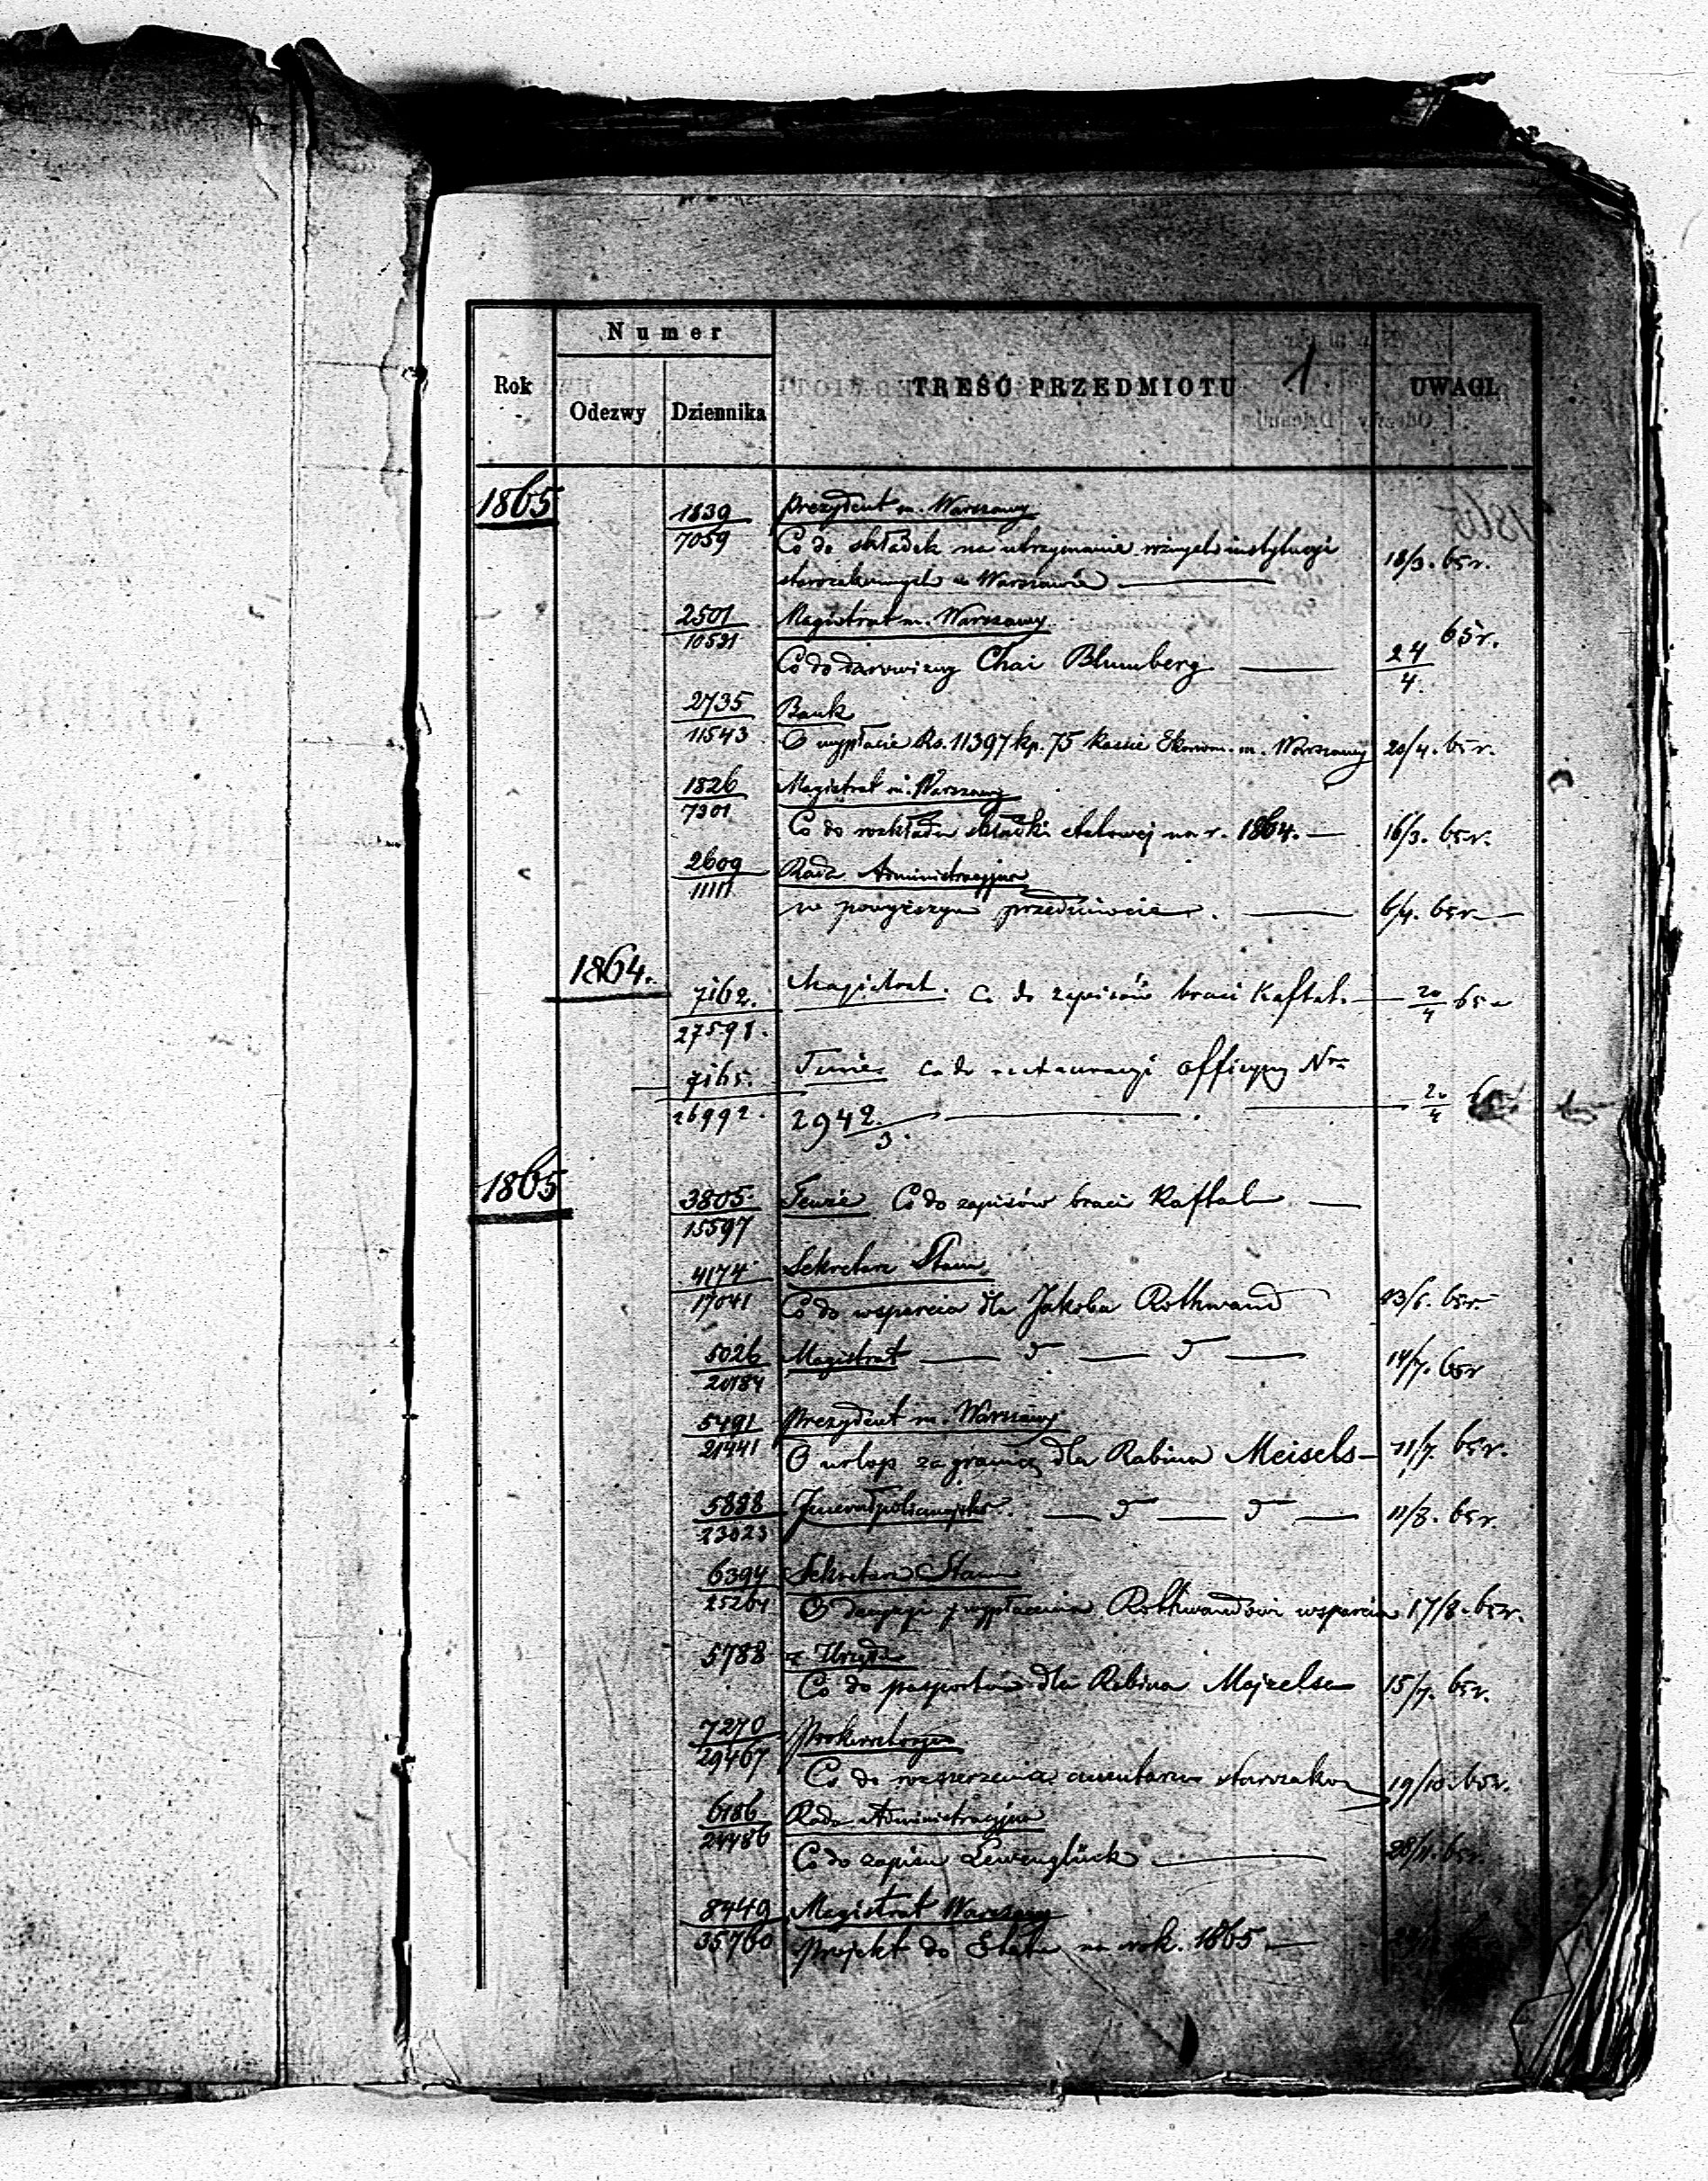 Numer
Rok Odezwy Dziennika TREŚĆ PRZEDMIOTU 1 UWAGI.
1865
1839 Prezydent m. Warszawy
7059 Co do składek na utrzymanie różnych instytucji 18/3. 65 r.
starozakonnych w Warszawie
2501 Magistrat m. Warszawy
10531 Co do darowizny Chai Blumberg 24/4. 65 r.
2735 Bank
11543 O wypłacie Rs. 11397 kp. 75 kassie Ekonom. m. Warszawy 20/4. 65 r.
1826 Magistrat m. Warszawy
7301 Co do rozkładu składki etatowej na r. 1864. 16/3. 65 r.
2609 Rada Administracyjna
11111 w powyższym przedmiocie. 6/4. 65 r.
1864.
7162. Magistrat. Co do zapisów braci Kaftal. 20/4 65 r
27591.
7165. Tenże Co do restauracyi officyny Nro
26992. 2942/3. 20/4
1865
3805 Tenże Co do zapisów braci Kaftal
15597
4174 Sekretarz Stanu
17041 Co do wsparcia dla Jakóba Rothwand 23/6. 65 r.
5026 Magistrat 14/7. 65 r
20184
5491 Prezydent m. Warszawy
21441 O urlop za granicę dla Rabina Meisels 11/7. 65 r.
5888 11/8. 65 r.
23023
6394 Sekretarz Stanu
25264 O decyzyi wypłacenia Rothwandowi wsparcia 17/8. 65 r.
5788 z Urzędu
Co do pasportu dla Rabina Majzelsa 15/7. 65 r.
7270 Prokuratorya
29467 Co do rozszerzenia cmentarza starozakon 19/10. 65 r.
6186 Rada Administracyjna
24486 Co do zapisu Lewenglück 28/11. 65 r.
8449 Magistrat Warszawy
35760 Projekt do Etatu na rok. 1865